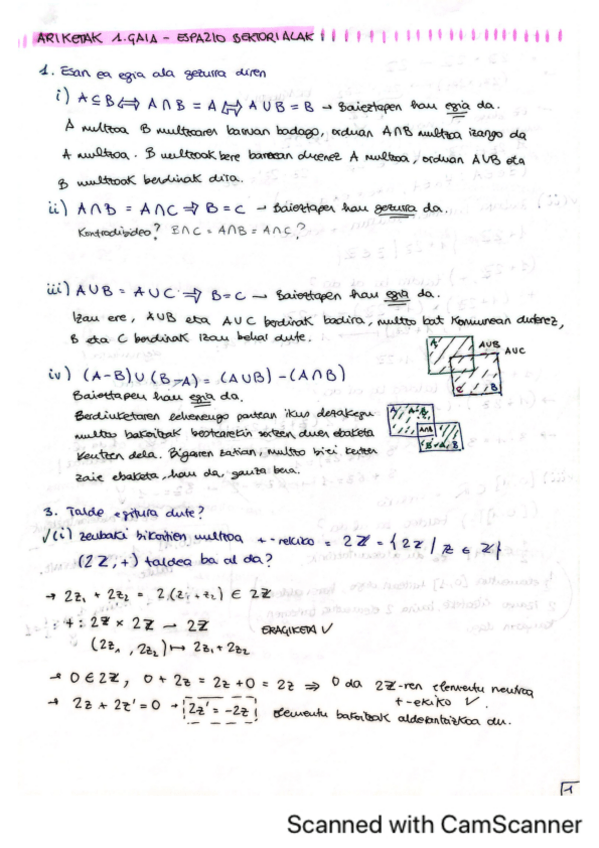 ARIKETAK 1.GAIA - ESPAZIO BEKTORIALAK
1. Esan ea egia ala gezurra diren
i) A ⊆ B ⟺ A ∩ B = A ⟺ A ∪ B = B → Baieztapen hau egia da.
A multzoa B multzoaren barruan badago, orduan A∩B multzoa izango da
A multzoa. B multzoak bere barruan duenez A multzoa, orduan A∪B eta
B multzoak berdinak dira.
ii) A∩B = A∩C ⇒ B=C → Baieztapen hau gezurra da.
Kontradibidea? B∩C = A∩B = A∩C?
iii) A∪B = A∪C ⇒ B=C → Baieztapen hau egia da.
Izan ere, A∪B eta A∪C berdinak badira, multzo bat komunean dutenez,
B eta C berdinak izan behar dute.
A
A∪B
A∪C
C
B
iv) (A-B)∪(B-A) = (A∪B) - (A∩B)
Baieztapen hau egia da.
Berdinketaren lehenengo partean ikus dezakegu
multzo bakoitzak bestearekin sortzen duen ebaketa
kentzen dela. Bigarren zatian, multzo biei kentzen
zaie ebaketa, hau da, gauza bera.
A
A-B
A∩B
B-A
B
3. Talde egitura dute?
√(i) zenbaki bikoitien multzoa +-rekiko = 2ℤ = {2z / z ∈ ℤ}
(2ℤ, +) taldea ba al da?
→ 2z₁ + 2z₂ = 2(z₁+z₂) ∈ 2ℤ
+ : 2ℤ × 2ℤ → 2ℤ ERAGIKETA √
(2z₁, 2z₂) ↦ 2z₁+2z₂
→ 0 ∈ 2ℤ, 0 + 2z = 2z + 0 = 2z ⇒ 0 da 2ℤ-ren elementu neutroa
+-ekiko √.
→ 2z + 2z' = 0 → 2z' = -2z elementu bakoitzak alderantzizkoa du.
1
Scanned with CamScanner